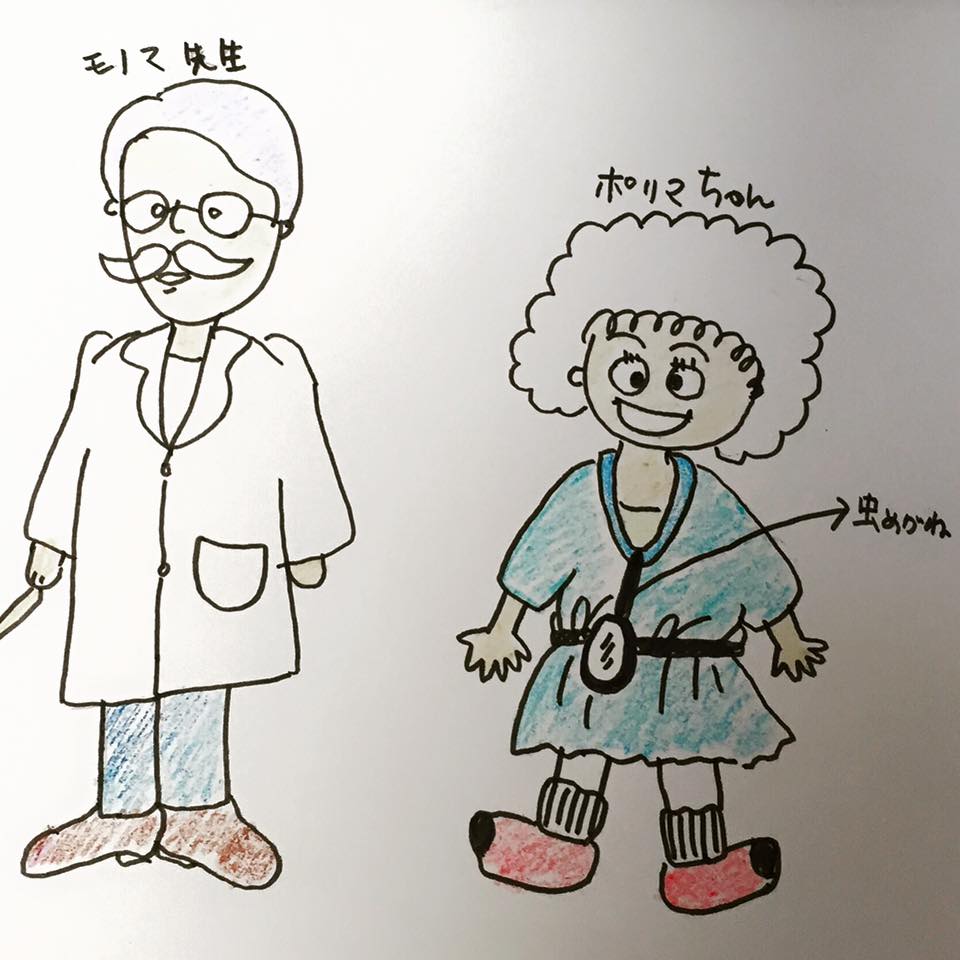 モノマ先生
ポリマちゃん
虫めがね